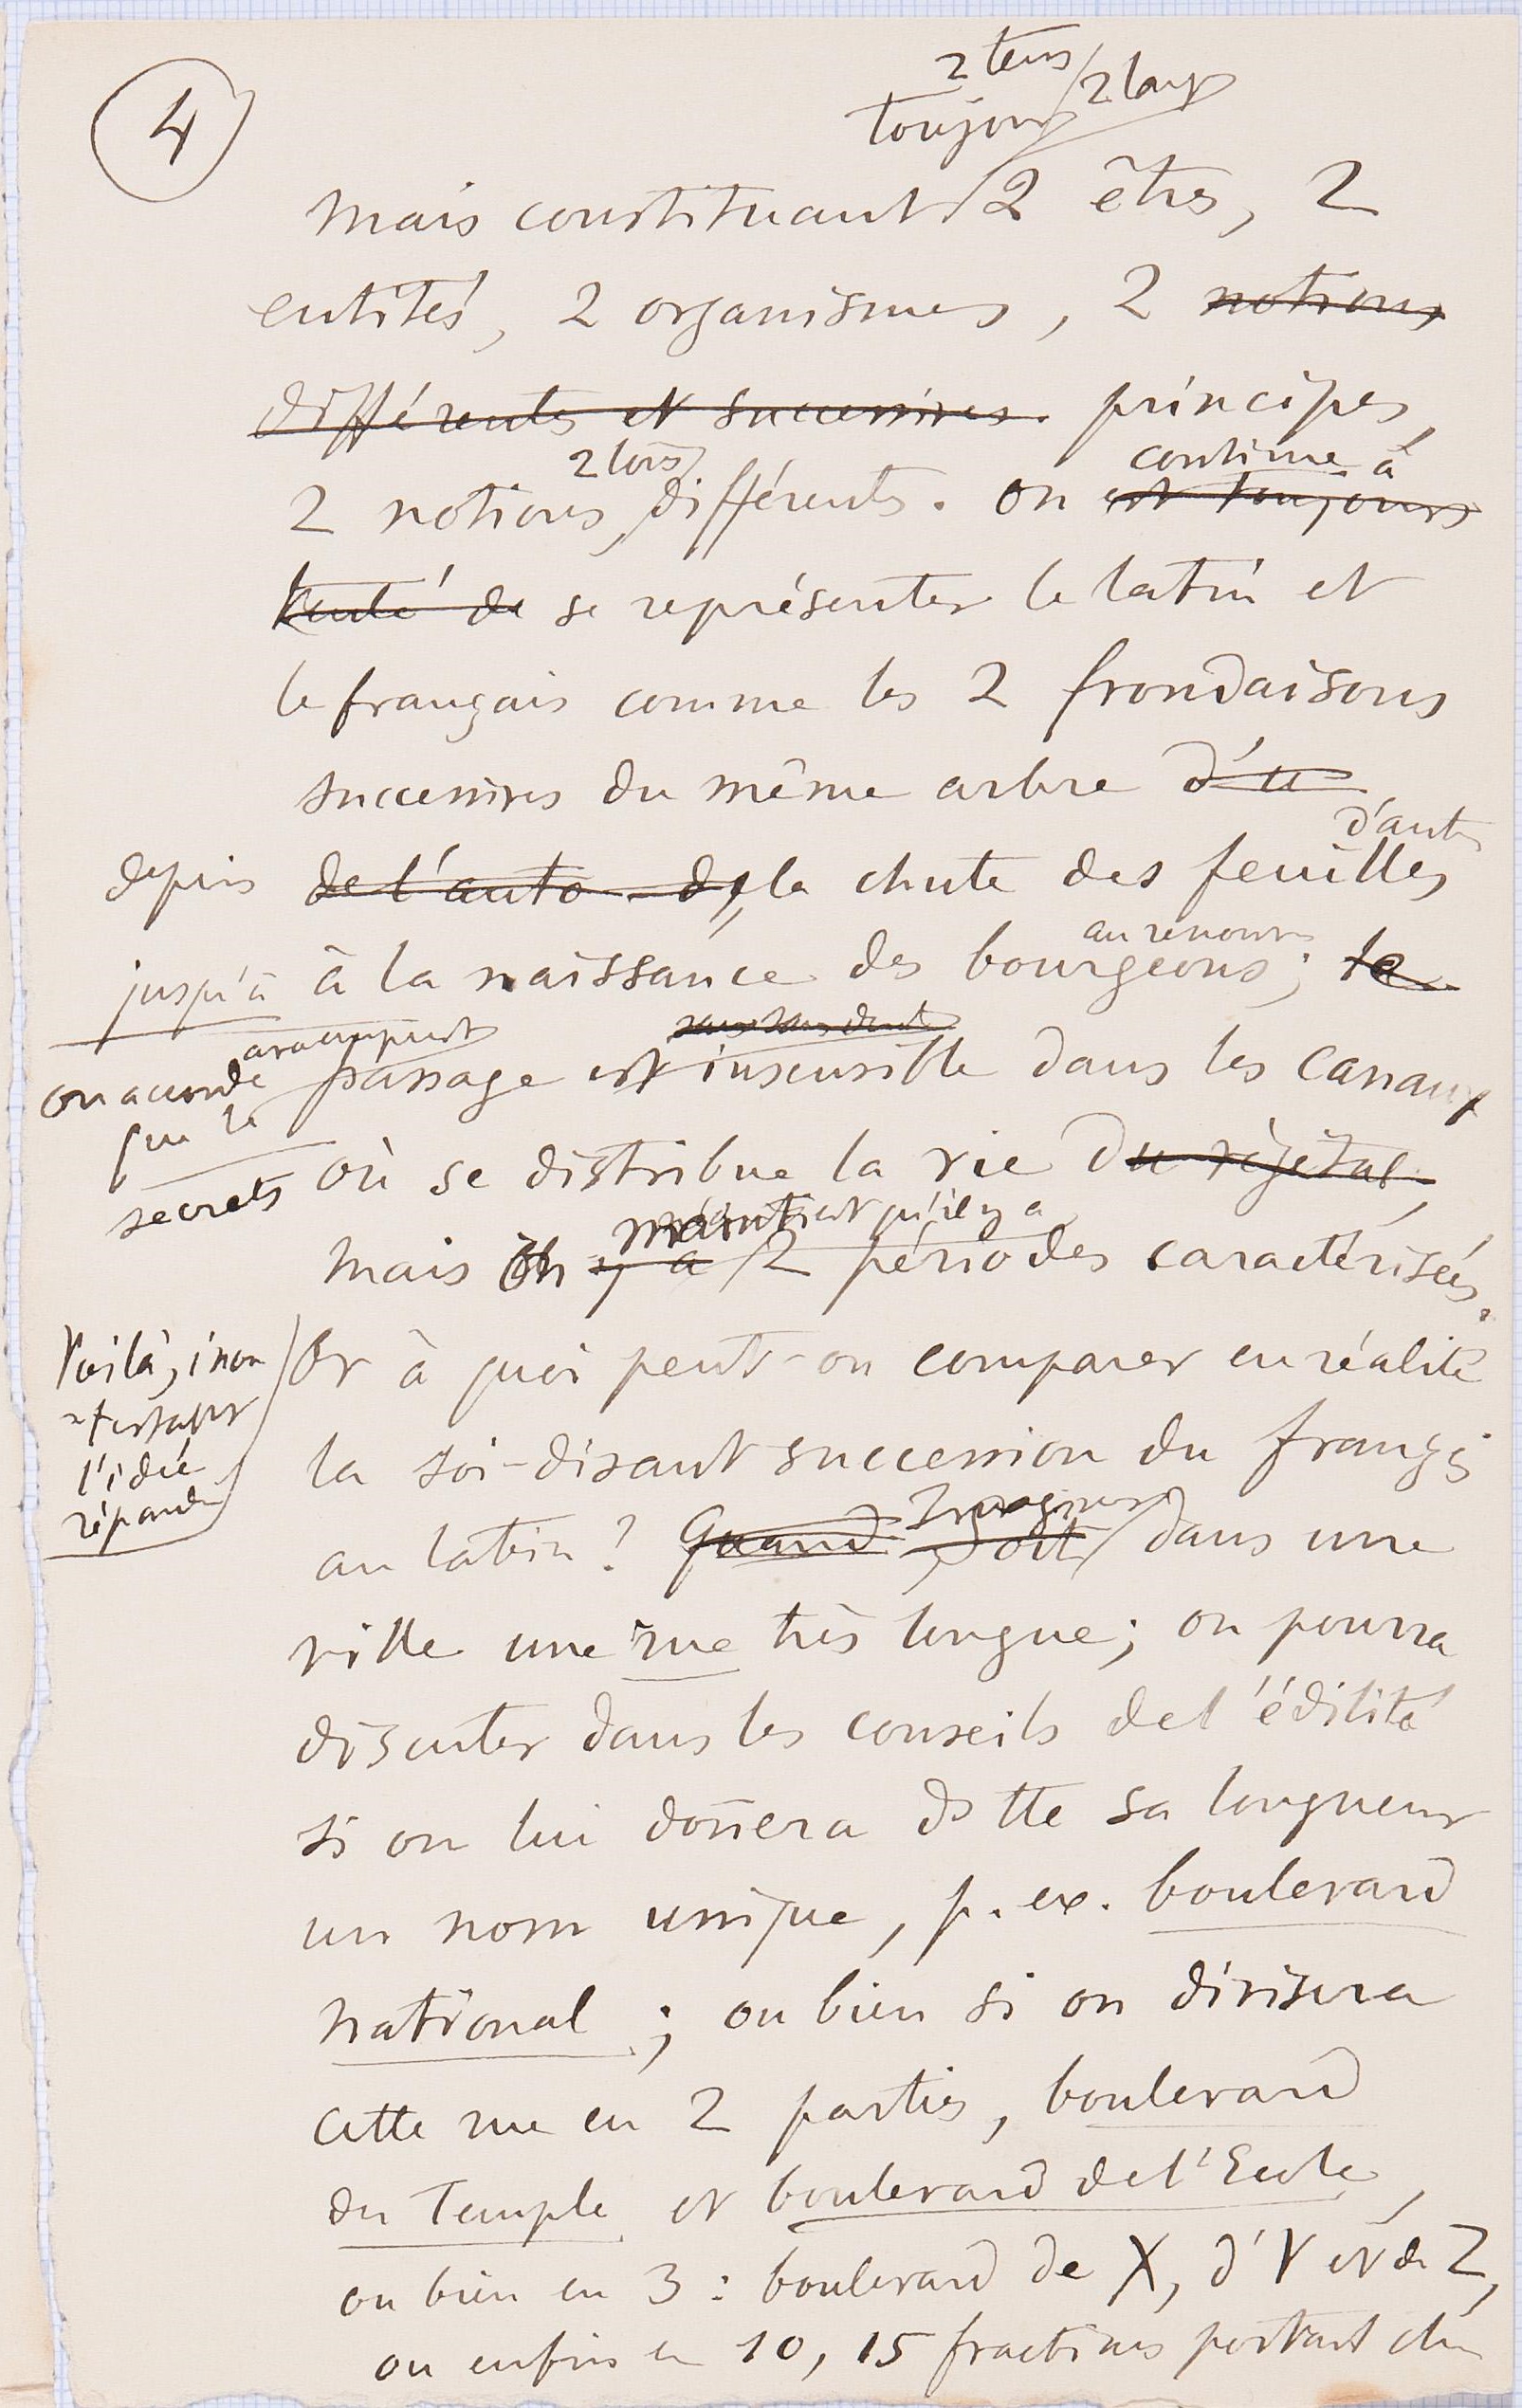 4
2 tem / 2 lang
toujours
mais constituant 2 êtres, 2
entités, 2 organismes, 2 notions
différents et successives. principes,
2 lois
2 notions différents. On est toujours
continue à
tenté de se représenter le latin et
le français comme les 2 frondaisons
successives du même arbre d'u
d'aut
depuis de l'auto de la chute des feuilles
au renouv
jusqu'à à la naissance des bourgeons; le
on accorde
que le passage est insensible dans les canaux
secrets où se distribue la vie du végétal,
maintient qu'il y a
mais on y a 2 périodes caractérisées.
Voilà, i non
l'idée
répandue
Or à quoi peut-on comparer en réalité
la soi-disant succession du françs
Imaginons
au latin? Quand Soit dans une
ville une rue très longue; on pourra
discuter dans les conseils de l'édilité
si on lui doñera ds tte sa longueur
un nom unique, p. ex. boulevard
national; ou bien si on divisera
cette rue en 2 parties, boulevard
du Temple et boulevard de l'Ecole,
ou bien en 3: boulevard de X, d'Y et de Z,
ou enfin en 10, 15 fractions portant chn